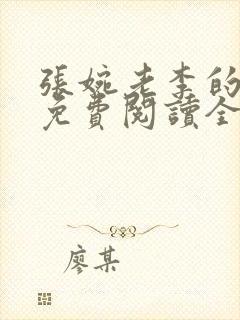 張婉老李的
免費閱讀全
廖某